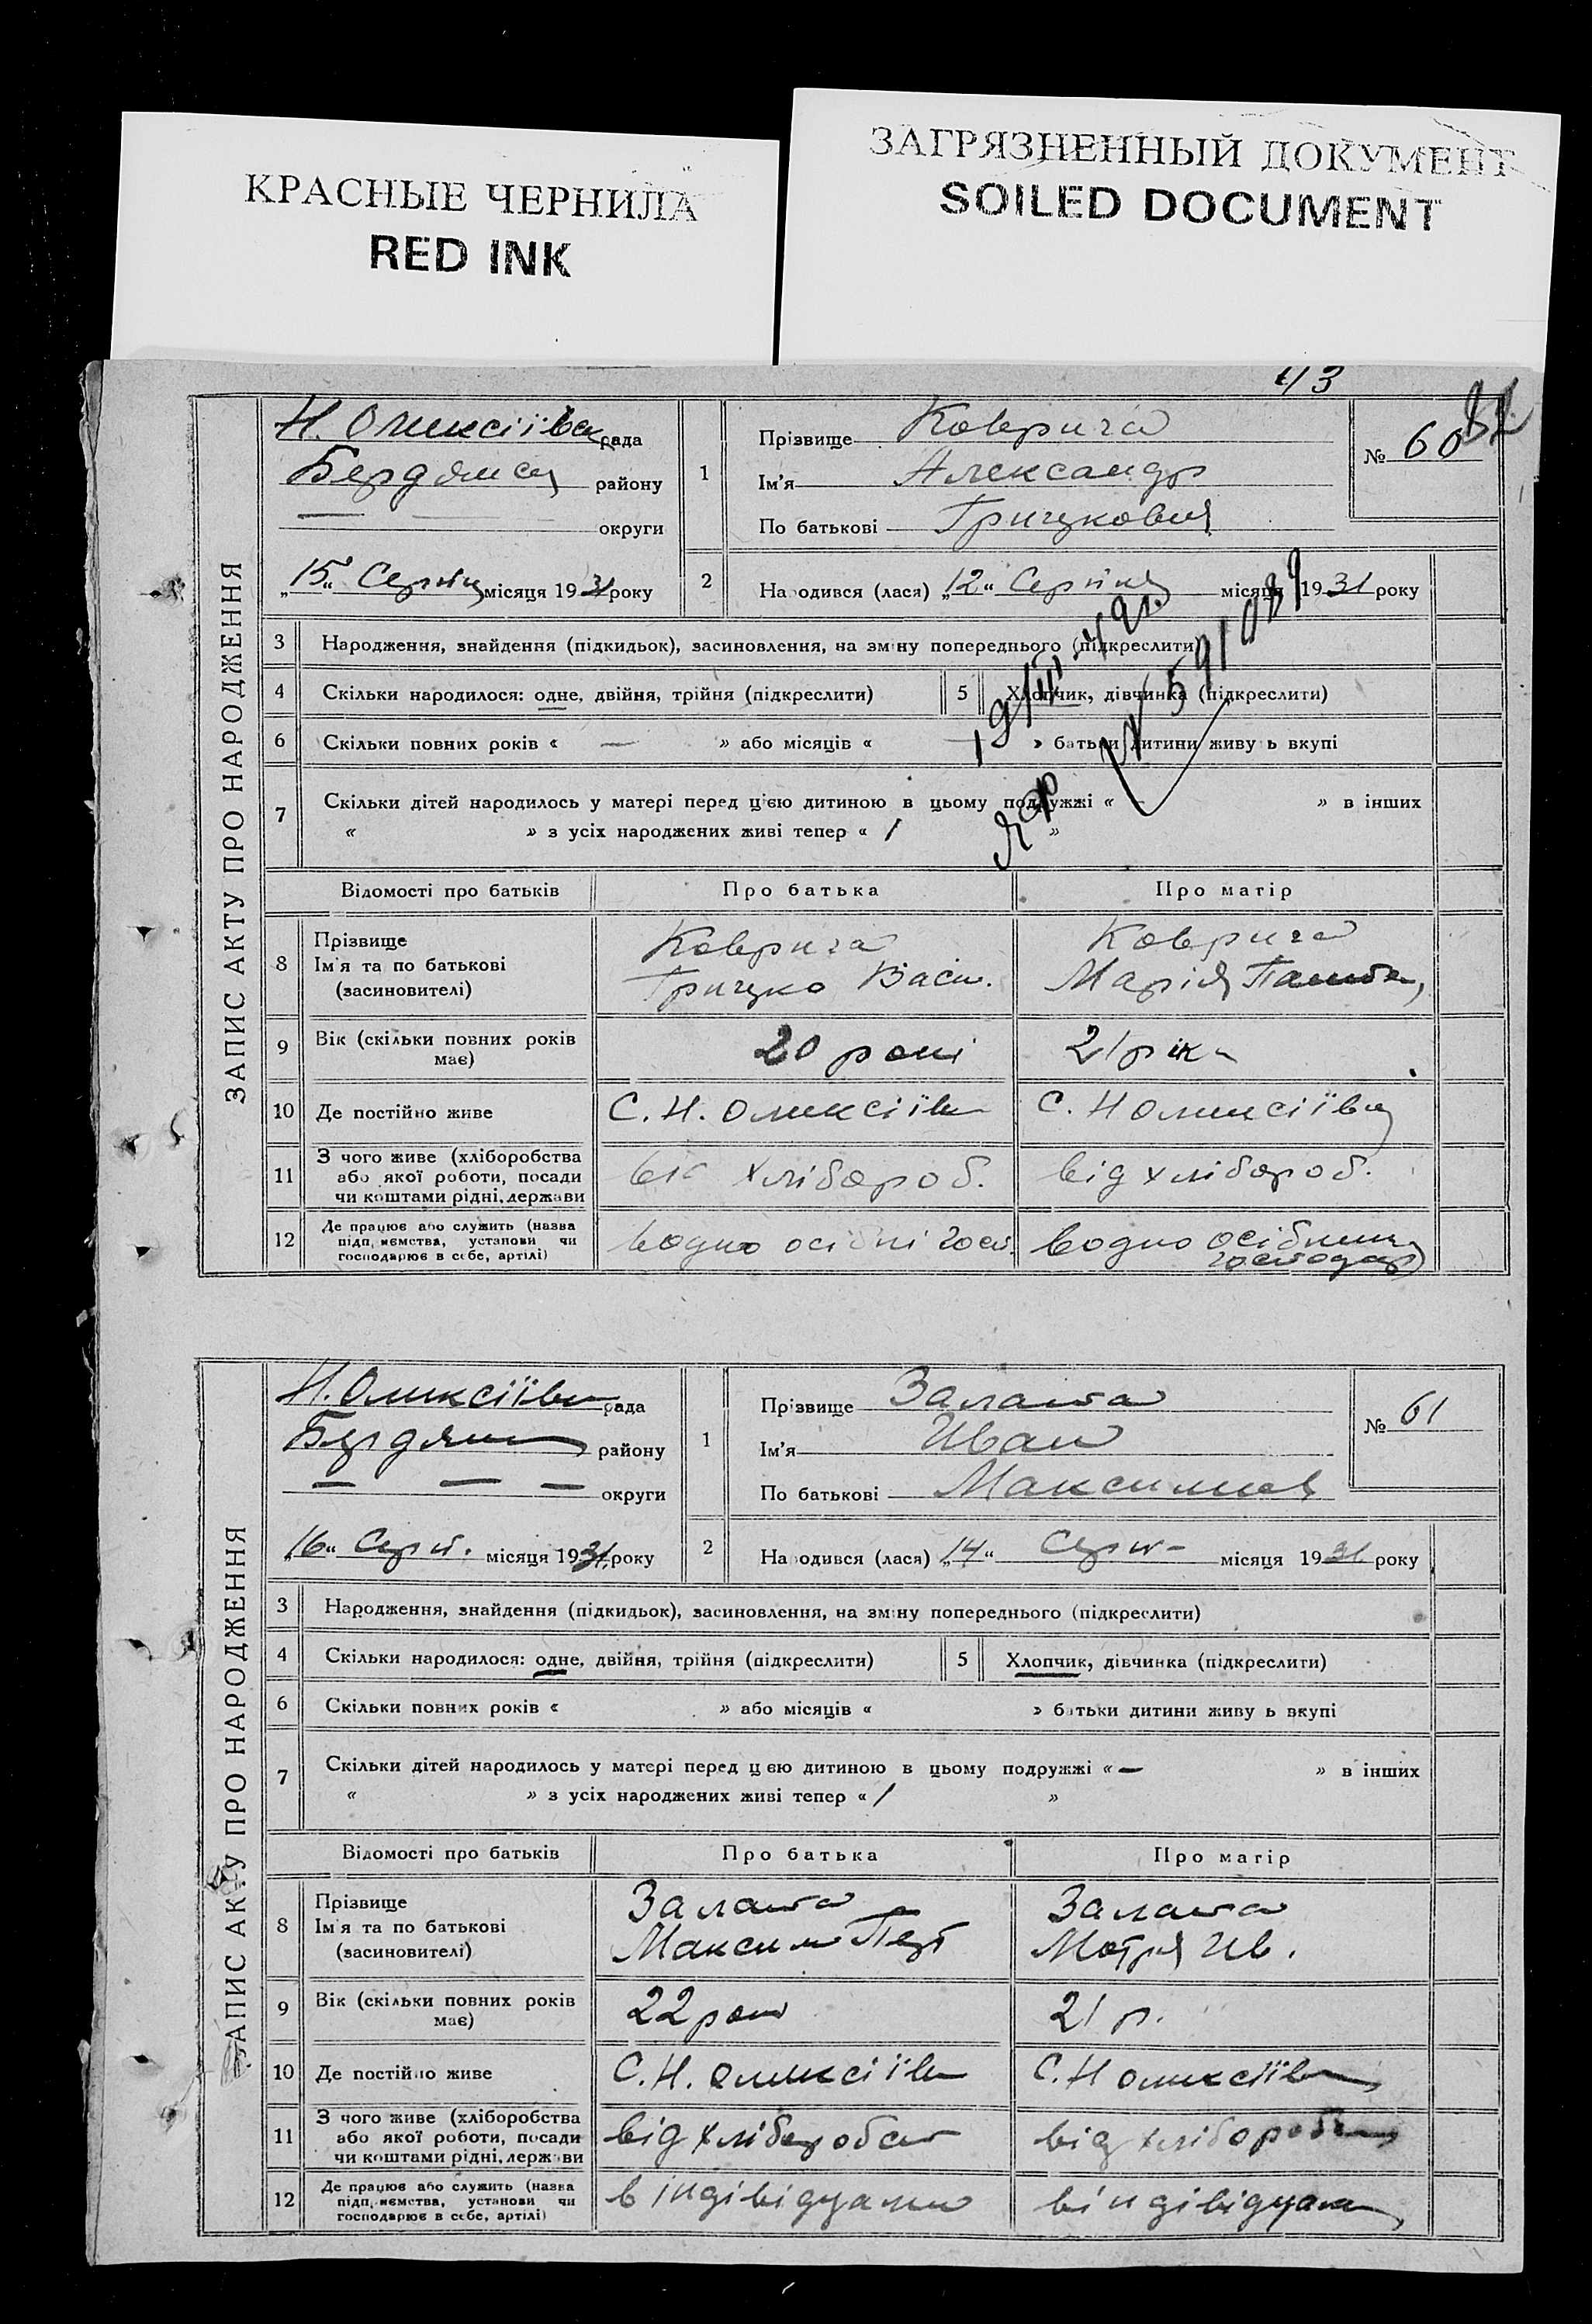 КРАСНЫЕ ЧЕРНИЛА
RED INK
ЗАГРЯЗНЕННЫЙ ДОКУМЕНТ
SOILED DOCUMENT
43
ЗАПИС АКТУ ПРО НАРОДЖЕННЯ
Н. Олексіївська рада
району
округи
"15" Серпня місяця 1931 року
1
Прізвище Коврига
Ім'я Александр
По батькові Грицкович
№ 60
2
Народився (лася) "12" Серпня місяця 1931 року
3 Народження, знайдення (підкидьок), засиновлення, на зміну попереднього (підкреслити)
4 Скільки народилося: одне, двійня, трійня (підкреслити)
5 Хлопчик, дівчинка (підкреслити)
6 Скільки повних років « — » або місяців « — » батьки дитини живуть вкупі
7 Скільки дітей народилось у матері перед цією дитиною в цьому подружжі « » в інших
« » з усіх народжених живі тепер « 1 »
Відомості про батьків Про батька Про матір
8 Прізвище Коврига Коврига
Ім'я та по батькові Грицко Васи. Марія
(засиновителі)
9 Вік (скільки повних років має) 20 років 21 рік
10 Де постійно живе С. Н. Олексіївк С. Н Олексіївка
11 З чого живе (хліборобства або якої роботи, посади чи коштами рідні, держави від хлібороб. від хлібороб.
12 Де працює або служить (назва підприємства, установи чи господарює в себе, артілі) водно осібні госп. водно осібним господар
ЗАПИС АКТУ ПРО НАРОДЖЕННЯ
Н. Олексіївк рада
району
— — — округи
"16" Серп. місяця 1931 року
1
Прізвище Залата
Ім'я Иван
По батькові Максимов
№ 61
2
Народився (лася) "14" Серп- місяця 1931 року
3 Народження, знайдення (підкидьок), засиновлення, на зміну попереднього (підкреслити)
4 Скільки народилося: одне, двійня, трійня (підкреслити)
5 Хлопчик, дівчинка (підкреслити)
6 Скільки повних років « » або місяців « » батьки дитини живуть вкупі
7 Скільки дітей народилось у матері перед цією дитиною в цьому подружжі « — » в інших
« » з усіх народжених живі тепер « 1 »
Відомості про батьків Про батька Про матір
8 Прізвище Залата Залата
Ім'я та по батькові Максим Пет Мотря Ив.
(засиновителі)
9 Вік (скільки повних років має) 22 рок 21 р.
10 Де постійно живе С. Н. Олексіївк С. Н Олексіївк
11 З чого живе (хліборобства або якої роботи, посади чи коштами рідні, держави від хліборобст від хлібороб
12 Де працює або служить (назва підприємства, установи чи господарює в себе, артілі) в індівідуальн в індівідуал